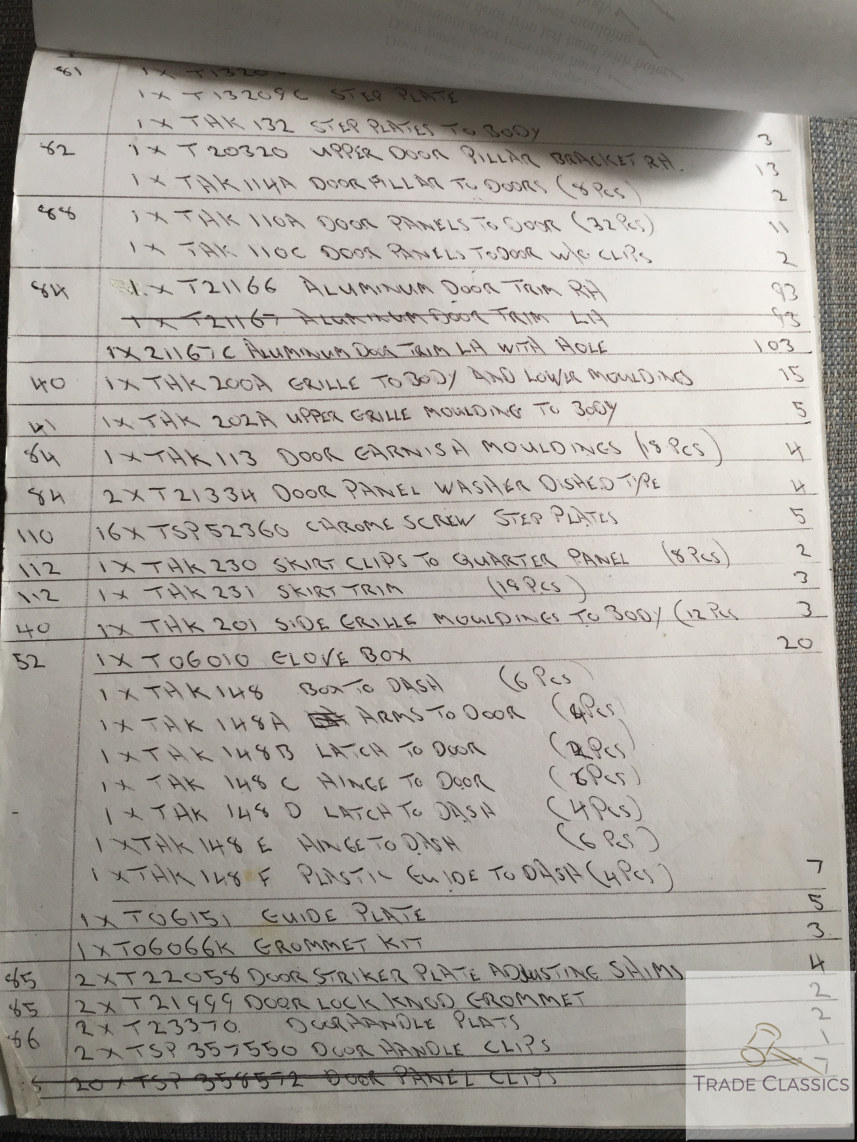 81 1 X T1320
1 X T13209C STEP PLATE
1 X THK 132 STEP PLATES TO BODY 3
82 1 X T20320 UPPER DOOR PILLAR BRACKET RH. 13
1 X THK 114A DOOR PILLAR TO DOORS (8 Pcs) 2
88 1 X THK 110A DOOR PANELS TO DOOR (32 Pcs) 11
1 X THK 110C DOOR PANELS TO DOOR W/C CLIPS 2
84 1 X T21166 ALUMINUM DOOR TRIM RH 93
1 X T21167 ALUMINUM DOOR TRIM LH 93
1 X 21167C ALUMINUM DOOR TRIM LH WITH HOLE 103
40 1 X THK 200A GRILLE TO BODY AND LOWER MOULDINGS 15
41 1 X THK 202A UPPER GRILLE MOULDING TO BODY 5
84 1 X THK 113 DOOR GARNISH MOULDINGS (18 Pcs) 4
84 2 X T21334 DOOR PANEL WASHER DISHED TYPE 4
110 16 X TSP52360 CHROME SCREW STEP PLATES 5
112 1 X THK 230 SKIRT CLIPS TO QUARTER PANEL (8 Pcs) 2
112 1 X THK 231 SKIRT TRIM (18 Pcs) 3
40 1 X THK 201 SIDE GRILLE MOULDINGS TO BODY (12 Pcs 3
52 1 X T06010 GLOVE BOX 20
1 X THK 148 BOX TO DASH (6 Pcs)
1 X THK 148A ARMS TO DOOR (4 Pcs)
1 X THK 148B LATCH TO DOOR (2 Pcs)
1 X THK 148 C HINGE TO DOOR (6 Pcs)
1 X THK 148 D LATCH TO DASH (4 Pcs)
1 X THK 148 E HINGE TO DASH (6 Pcs)
1 X THK 148 F PLASTIC GUIDE TO DASH (4 Pcs) 7
1 X T06151 GUIDE PLATE 5
1 X T06066K GROMMET KIT 3
85 2 X T22058 DOOR STRIKER PLATE ADJUSTING SHIMS 4
85 2 X T21999 DOOR LOCK KNOB GROMMET 2
86 2 X T23370. DOOR HANDLE PLATS 2
2 X TSP 357550 DOOR HANDLE CLIPS 1
20 X TSP 358572 DOOR PANEL CLIPS 7
TRADE CLASSICS